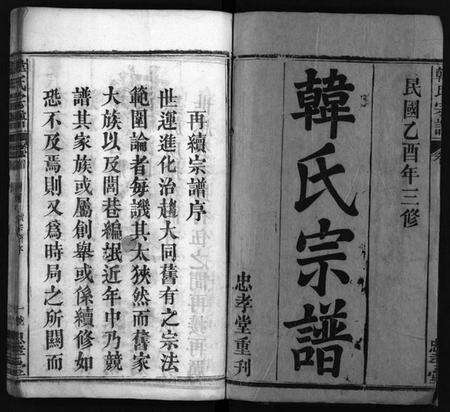 民國乙酉年三修
韓氏宗譜
忠孝堂重刊
再續宗譜序
世運進化治趨大同舊有之宗法
範圍論者每譏其太狹然而舊家
大族以及閭巷編氓近年中乃競
譜其家族或屬創舉或係續修如
恐不及焉則又為時局之所關而
韓氏宗譜